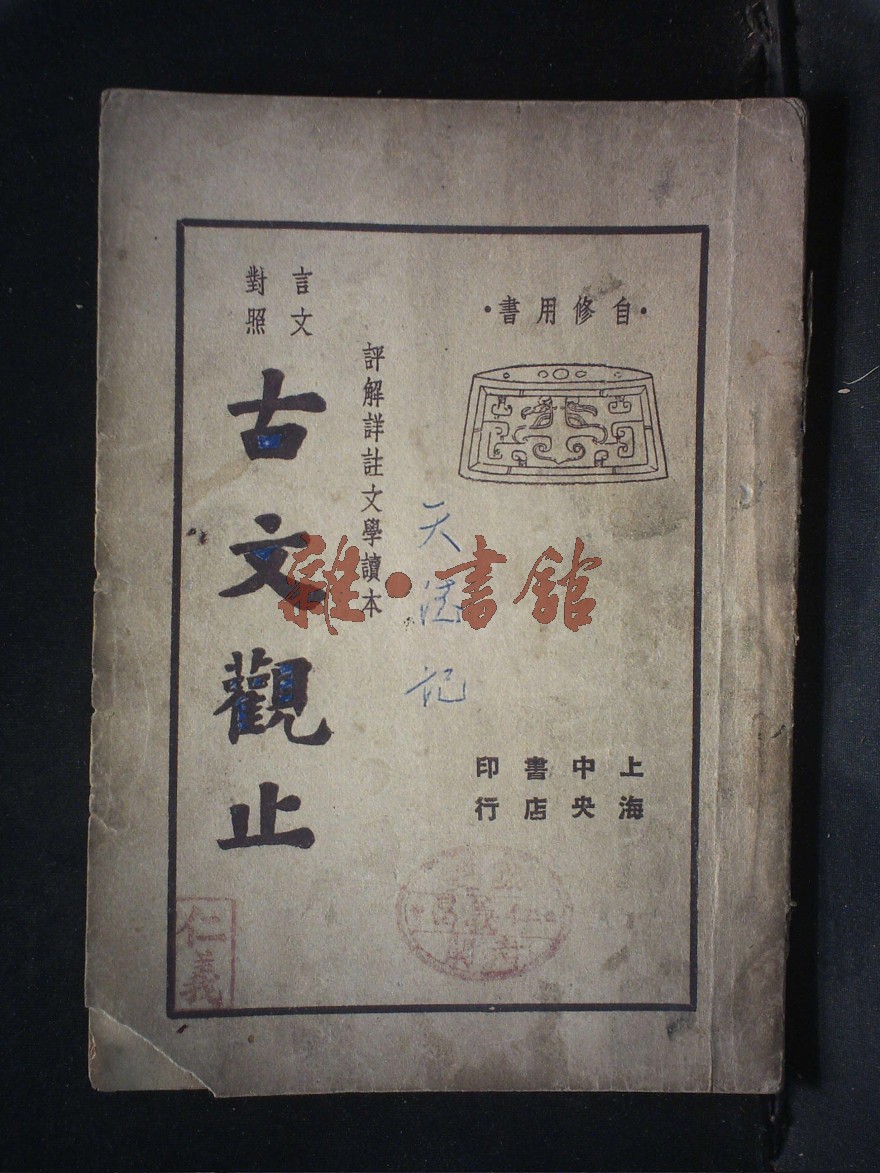 ·自修用書·
評解詳註文學讀本
言文
對照
古文觀止
上海
中央
書店
印行
仁義
雜·書館